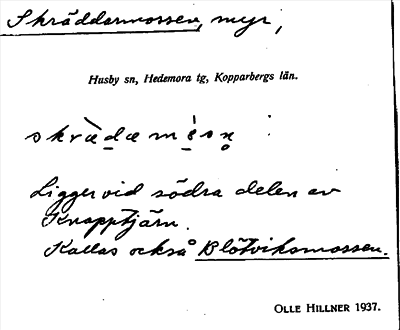 Skräddarmossen, myr,
Husby sn, Hedemora tg, Kopparbergs län.
skræ̀dæmésn̥
Ligger vid södra delen av
Knapptjärn.
Kallas också Blötviksmossen.
OLLE HILLNER 1937.